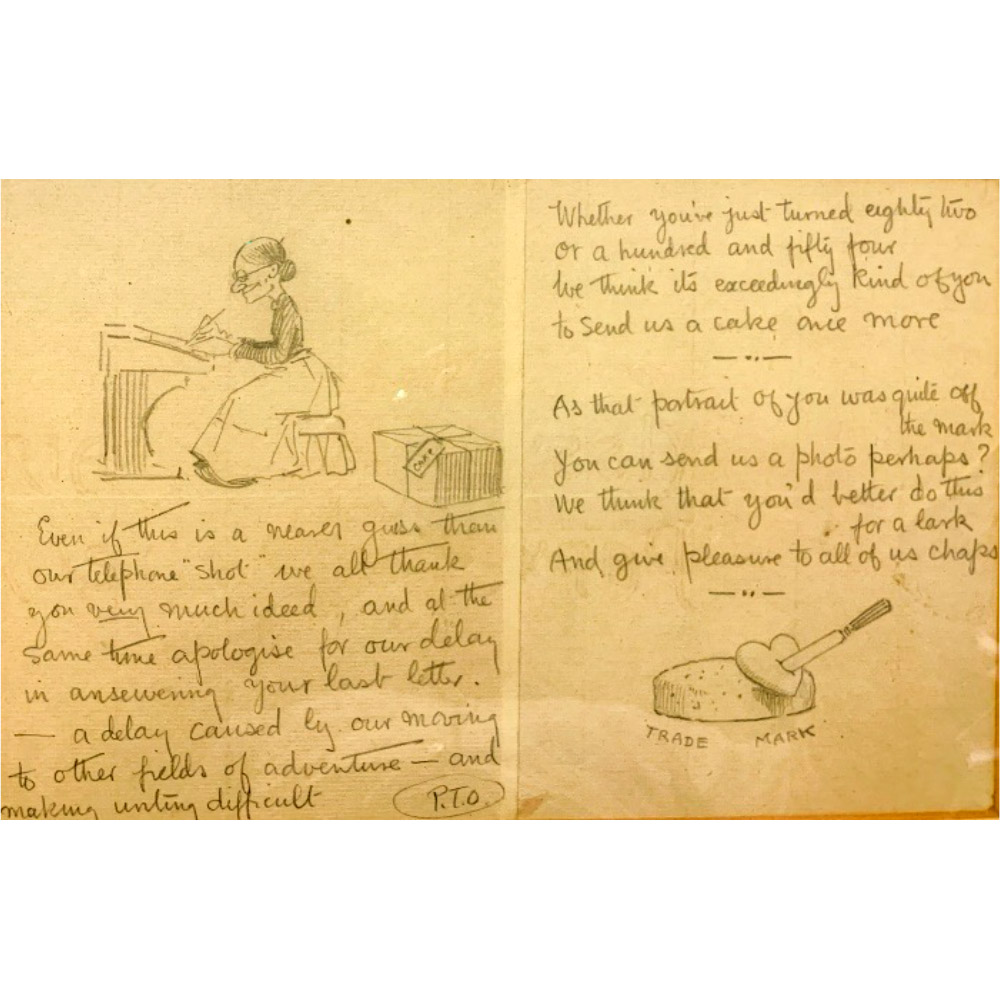 CAKE
Even if this is a nearer guess than
our telephone "shot" we all thank
you very much ideed, and at the
same time apologise for our delay
in ansewering your last letter.
— a delay caused by our moving
to other fields of adventure — and
making writing difficult
P.T.O.
Whether you've just turned eighty two
or a hundred and fifty four
We think its exceedingly kind of you
to send us a cake once more
As that portrait of you was quite off
the mark
You can send us a photo perhaps?
We think that you'd better do this
for a lark
And give pleasure to all of us chaps
TRADE MARK